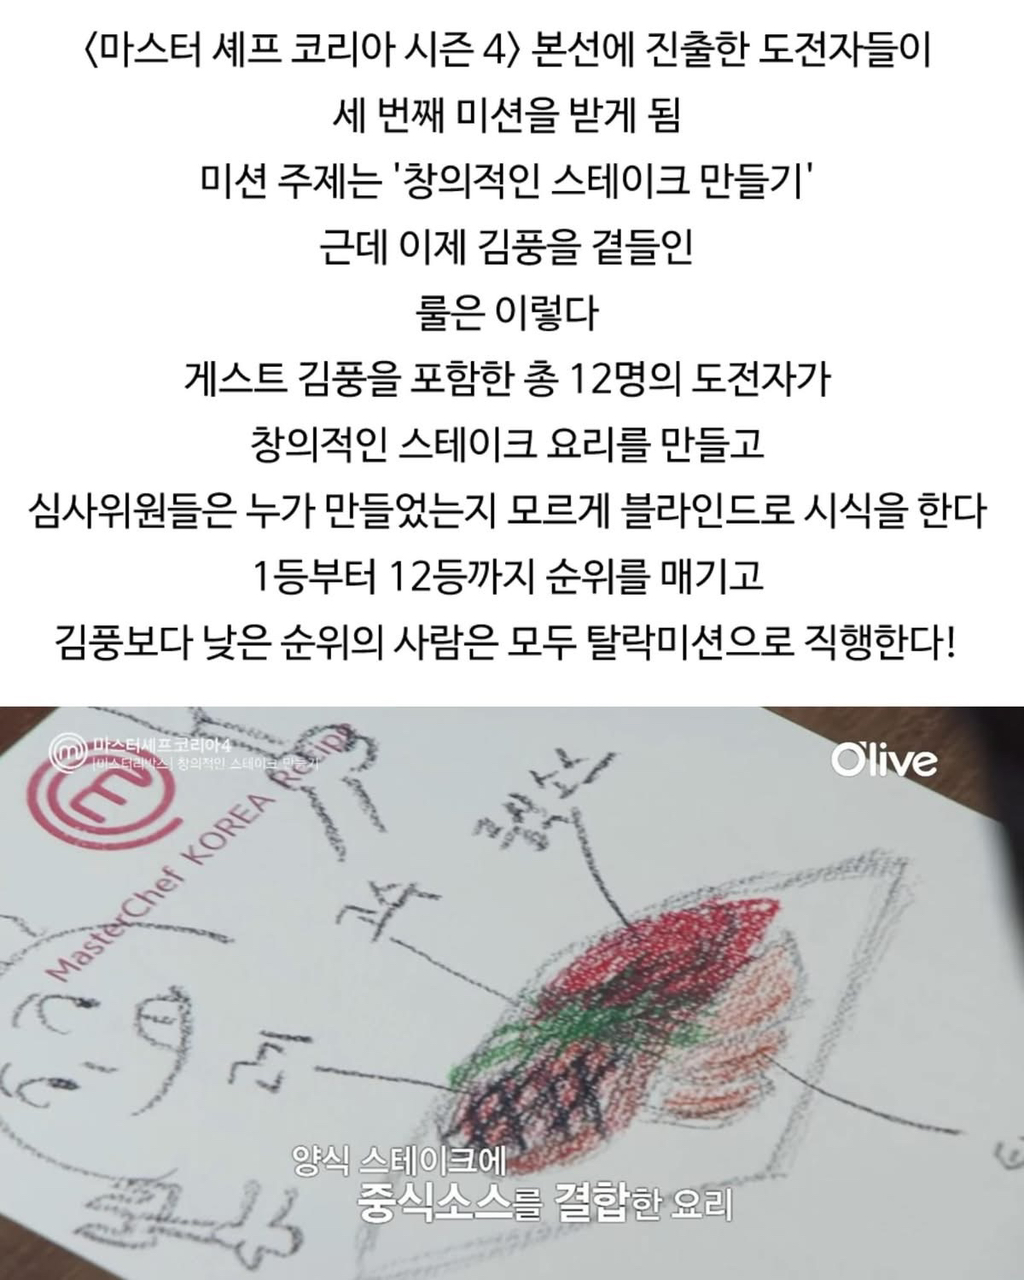 <마스터 셰프 코리아 시즌 4> 본선에 진출한 도전자들이
세 번째 미션을 받게 됨
미션 주제는 '창의적인 스테이크 만들기'
근데 이제 김풍을 곁들인
룰은 이렇다
게스트 김풍을 포함한 총 12명의 도전자가
창의적인 스테이크 요리를 만들고
심사위원들은 누가 만들었는지 모르게 블라인드로 시식을 한다
1등부터 12등까지 순위를 매기고
김풍보다 낮은 순위의 사람은 모두 탈락미션으로 직행한다!
마스터셰프코리아4
[미스터리박스] 창의적인 스테이크 만들기
O'live
MasterChef KOREA Recipe
중식소스
고수
고기
양식 스테이크에
중식소스를 결합한 요리